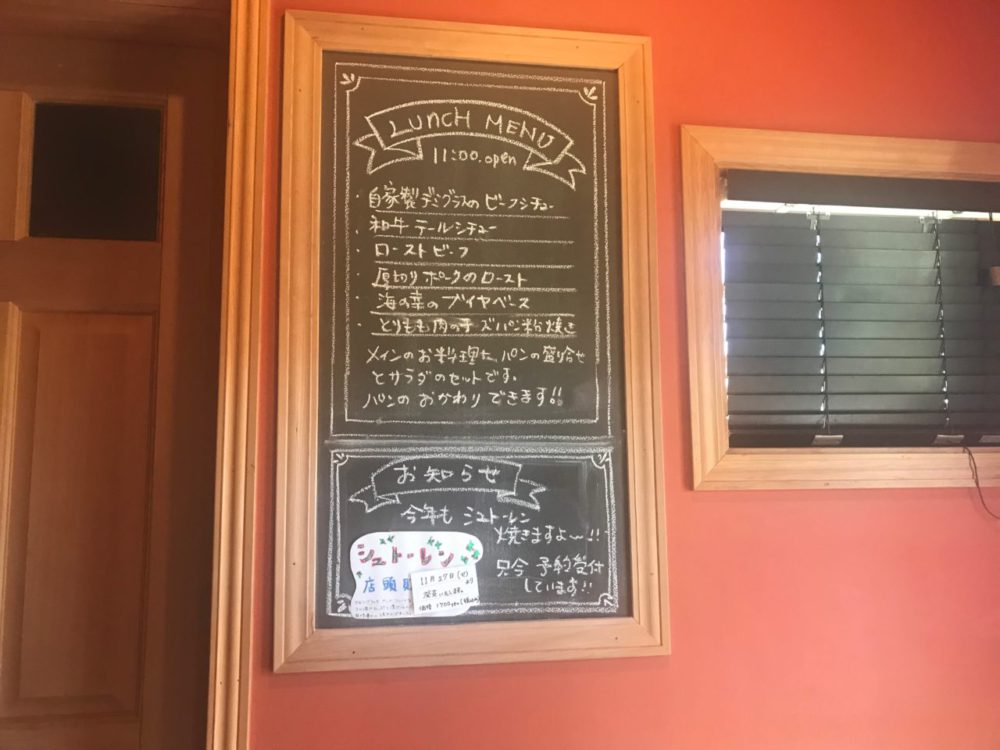 LUNCH MENU
11:00.open
・自家製デミグラスのビーフシチュー
・和牛テールシチュー
・ローストビーフ
・厚切りポークのロースト
・海の幸のブイヤベース
・とりもも肉のチーズパン粉焼き
メインのお料理と、パンの盛り合せ
とサラダのセットです。
パンのおかわりできます!!
お知らせ
今年もシュトーレン
焼きますよ〜!!
只今 予約受付
しています!!
シュトーレン
店頭
11月27日(土)より
発売いたします。
価格 1700yen